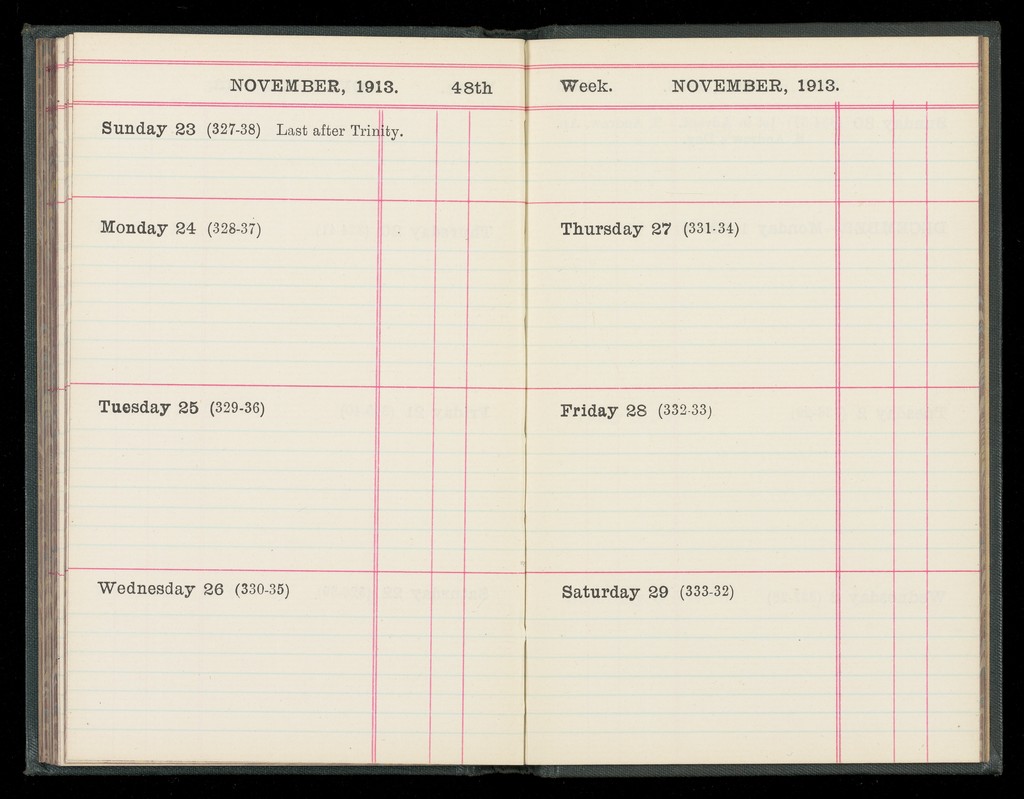 NOVEMBER, 1913. 48th
Sunday 23 (327-38) Last after Trinity.
Monday 24 (328-37)
Tuesday 25 (329-36)
Wednesday 26 (330-35)
Week. NOVEMBER, 1913.
Thursday 27 (331-34)
Friday 28 (332-33)
Saturday 29 (333-32)